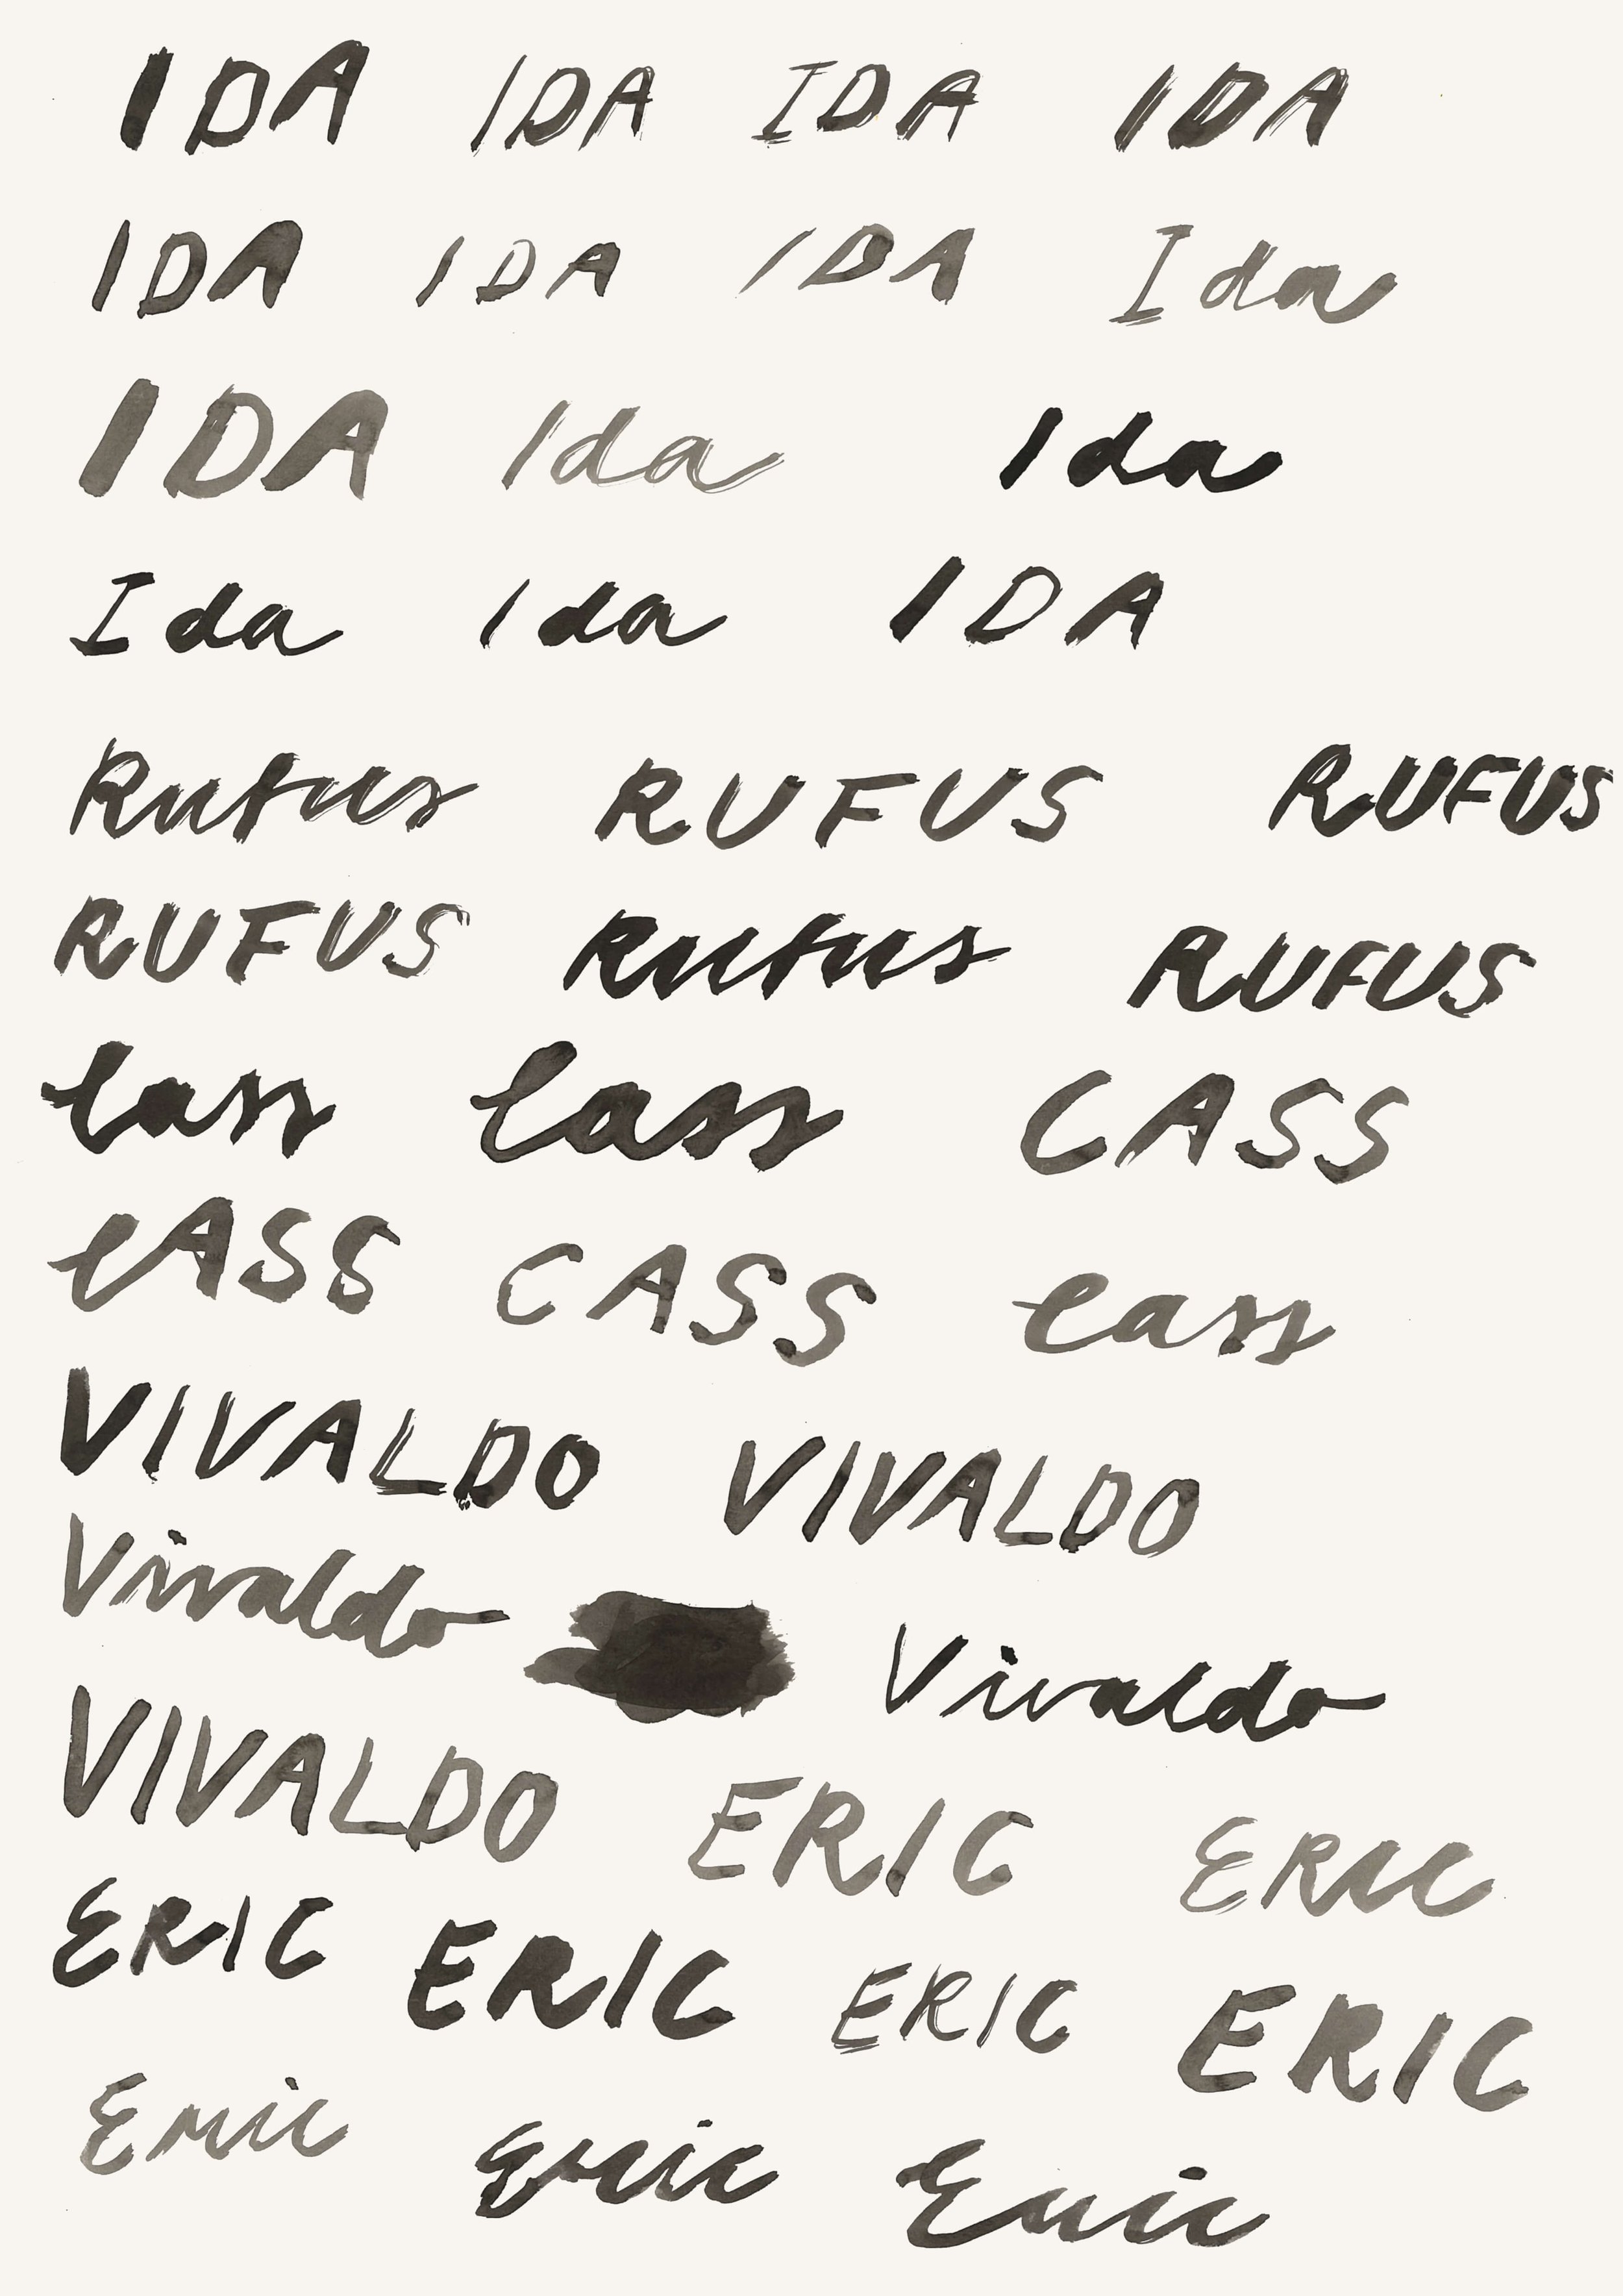 IDA IDA IDA IDA
IDA IDA IDA Ida
IDA Ida Ida
Ida Ida IDA
Rufus RUFUS RUFUS
RUFUS Rufus RUFUS
Cass Cass CASS
CASS CASS Cass
VIVALDO VIVALDO
Vivaldo Vivaldo
VIVALDO ERIC ERIC
ERIC ERIC ERIC ERIC
Eric Eric Eric